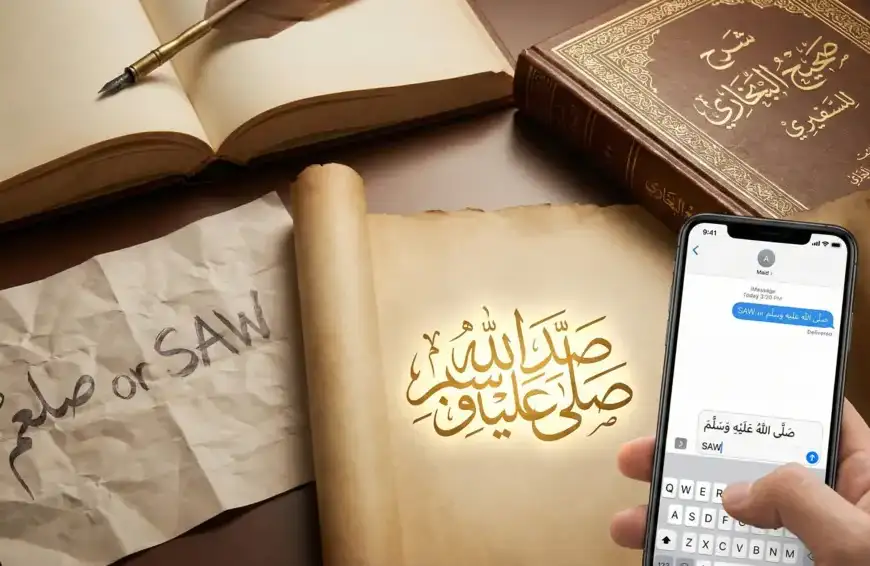 شرح
صحيح البخاري
للسفيري
البخاري
صلعم or SAW
الله
صلى
9:41
A
Maid
iMessage
Today 3:20 PM
صلَّى الله عليه وسلم or SAW
Delivered
صَلَّى اللهُ عَلَيْهِ وَسَلَّمَ
SAW
Q W E R
A S D F
Z X C V B N M
123